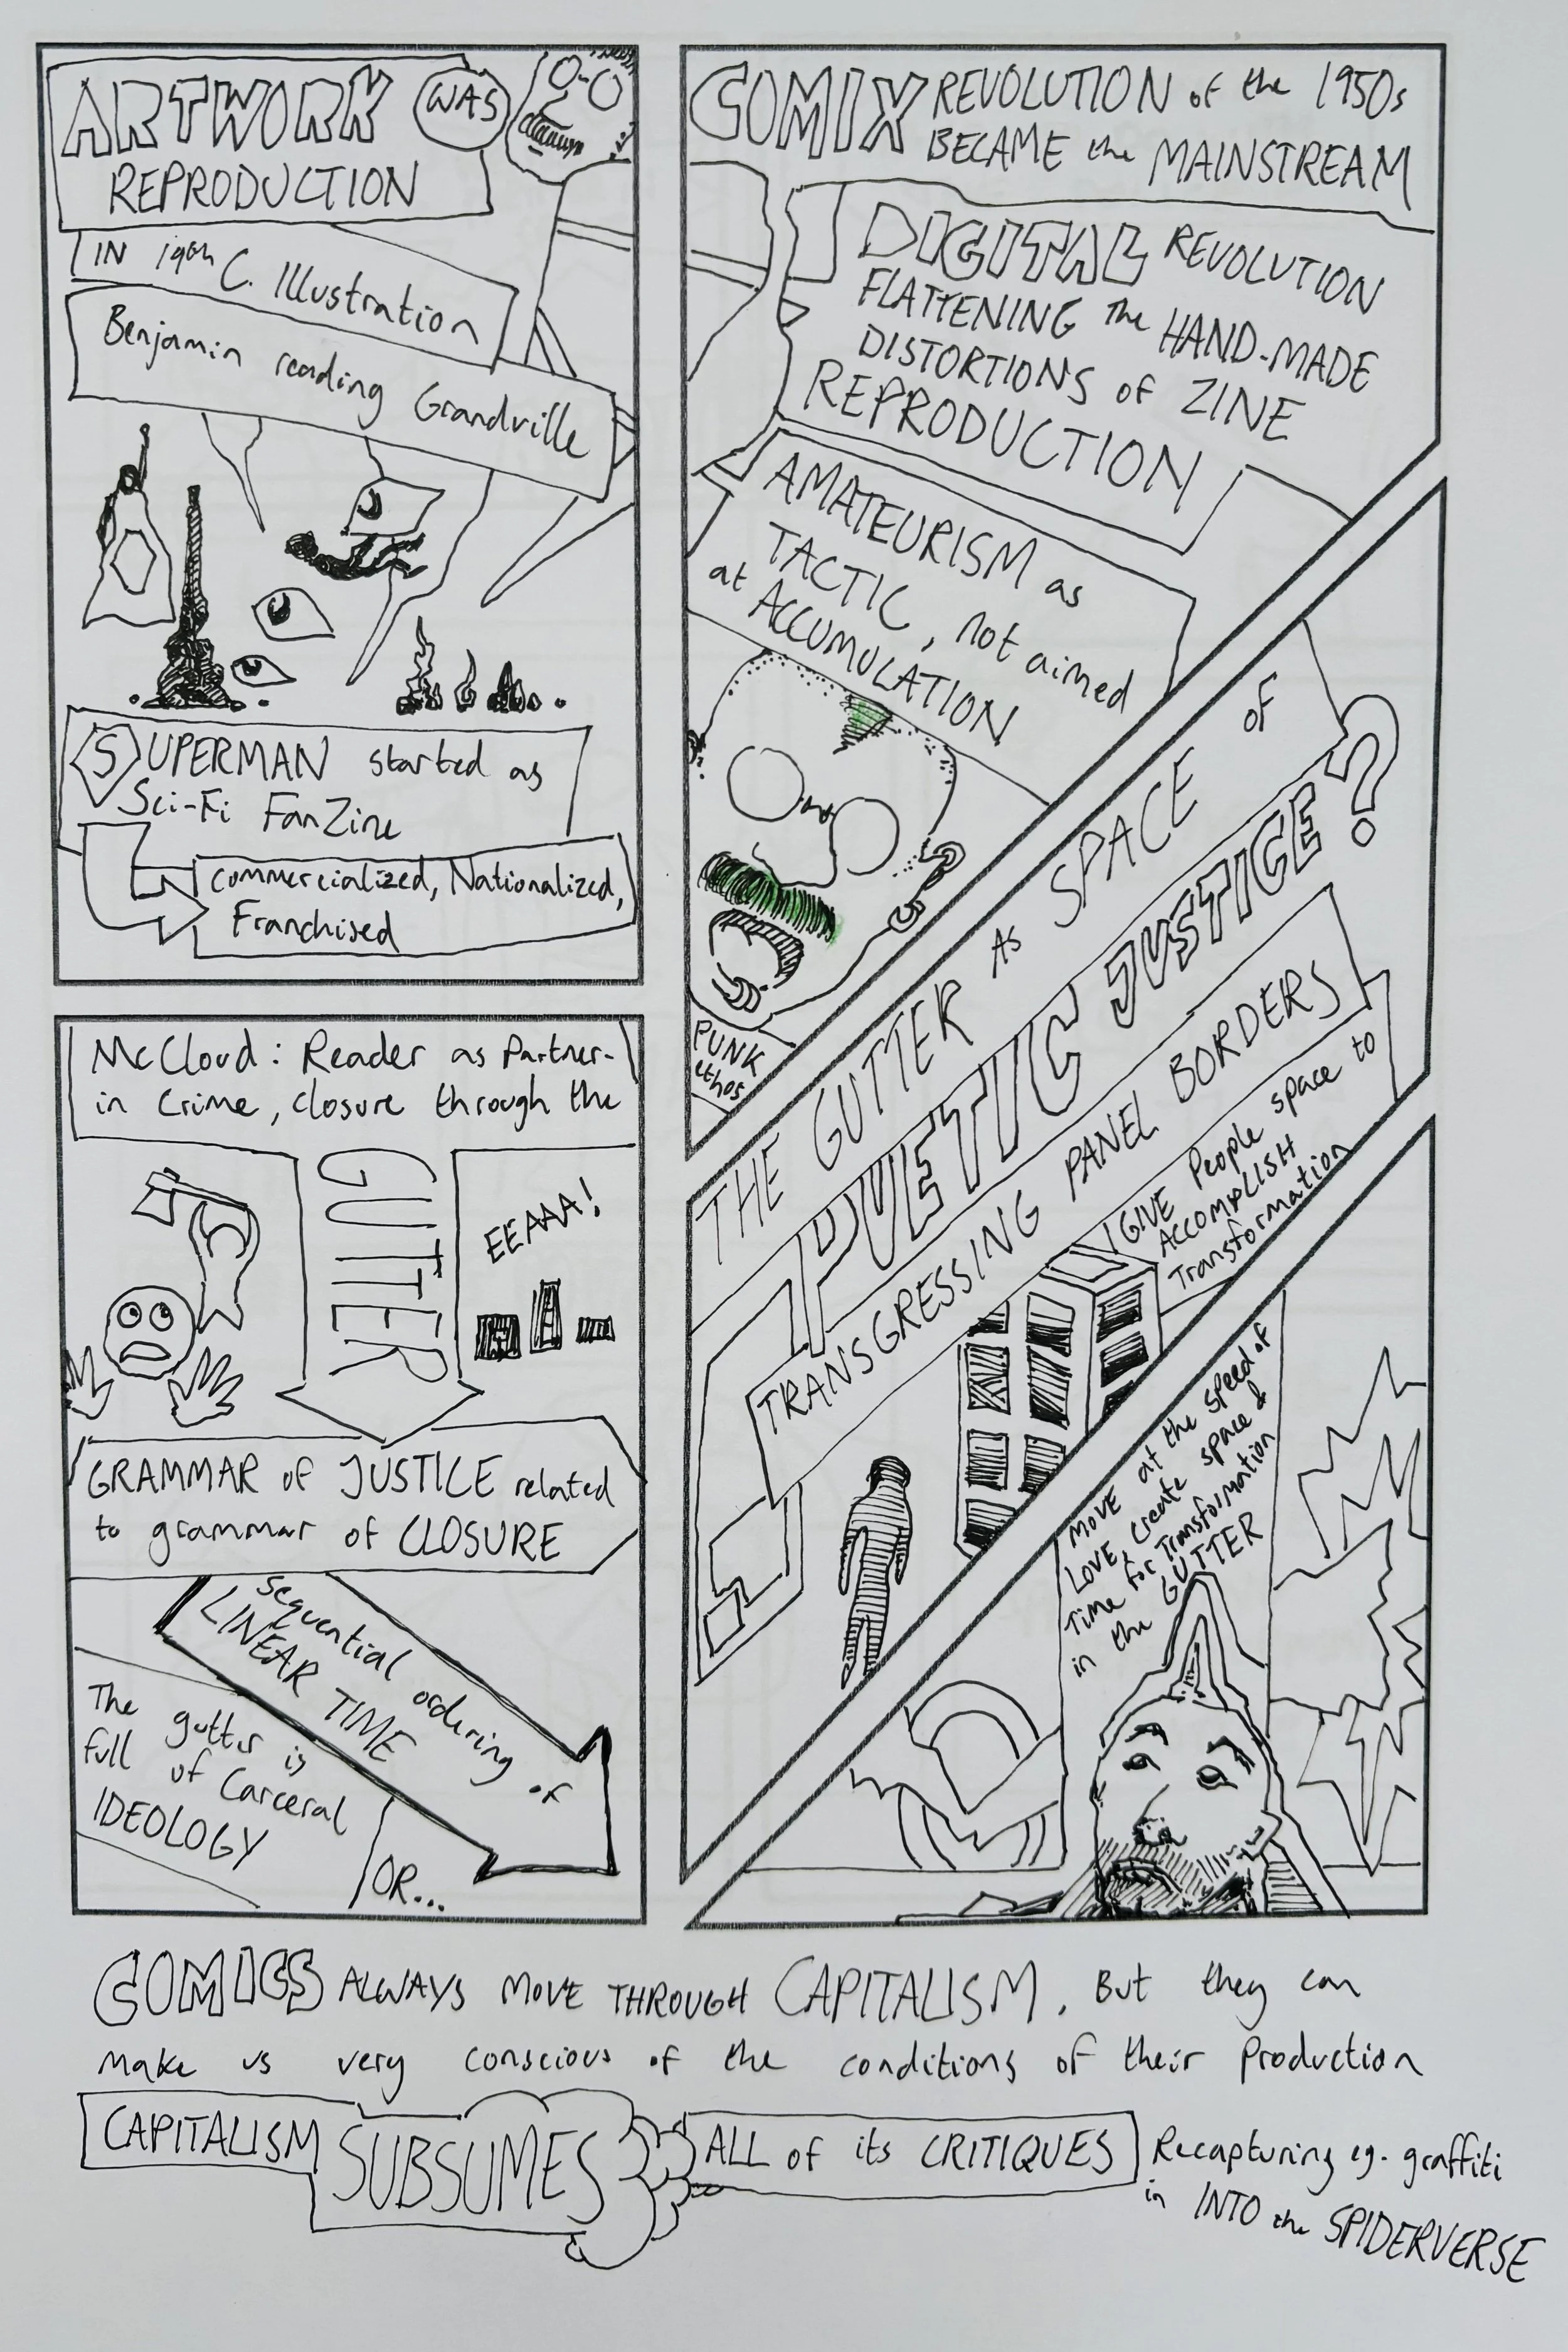 ARTWORK WAS
REPRODUCTION
IN 19th C. Illustration
Benjamin reading Grandville
SUPERMAN started as
Sci-Fi FanZine
commercialized, Nationalized,
Franchised
McCloud: Reader as Partner-
in Crime, closure through the
GUTTER
EEAAA!
GRAMMAR of JUSTICE related
to grammar of CLOSURE
sequential ordering of
LINEAR TIME
The gutter is
full of Carceral
IDEOLOGY
OR...
COMIX REVOLUTION of the 1950s
BECAME the MAINSTREAM
DIGITAL REVOLUTION
FLATTENING The HAND-MADE
DISTORTIONS of ZINE
REPRODUCTION
AMATEURISM as
TACTIC, not aimed
at ACCUMULATION
PUNK
ethos
THE GUTTER As SPACE OF
POETIC JUSTICE?
TRANSGRESSING PANEL BORDERS
GIVE People space to
ACCOMPLISH
Transformation
MOVE at the speed of
LOVE, create space &
Time for Transformation
in the GUTTER
COMICS ALWAYS MOVE THROUGH CAPITALISM, But they can
make us very conscious of the conditions of their production
CAPITALISM SUBSUMES ALL of its CRITIQUES Recapturing eg. graffiti
in INTO the SPIDERVERSE